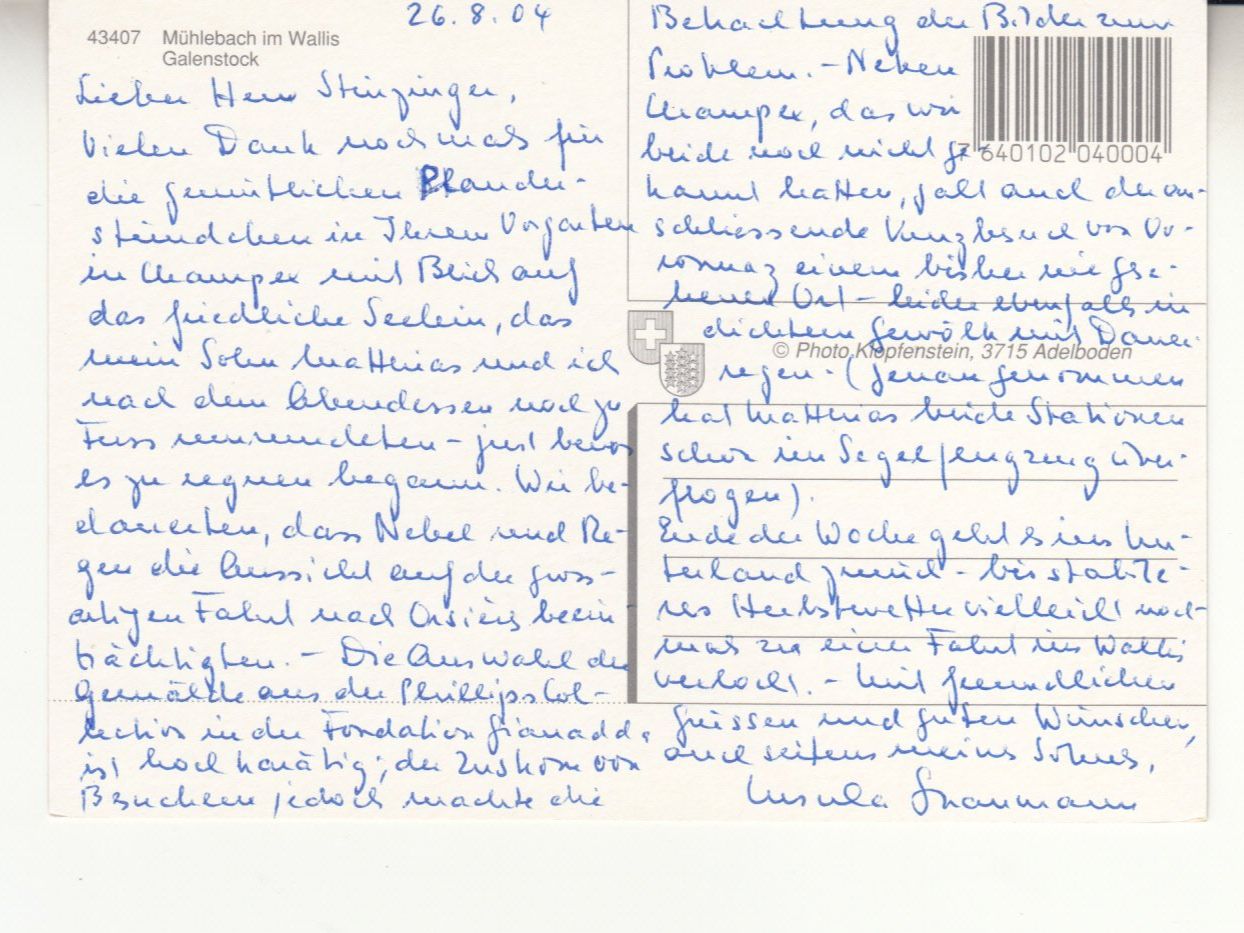 26.8.04
43407 Mühlebach im Wallis
Galenstock
Lieber Herr Steinzinger,
Vielen Dank nochmals für
die gemütlichen Plauder-
stündchen in Ihrem Vorgarten
in Champex mit Blick auf
das friedliche Seelein, das
mein Sohn Matthias und ich
nach dem Abendessen noch zu
Fuss umrundeten – just bevor
es zu regnen begann. Wir be-
dauerten, dass Nebel und Re-
gen die Aussicht auf der gross-
artigen Fahrt nach Orsières beein-
trächtigten. – Die Auswahl der
Gemälde aus der Phillips Col-
lection in der Fondation Gianadda
ist hochkarätig; der Zustrom von
Besuchern jedoch machte die
Betrachtung der Bilder zum
Problem. – Neben
Champex, das wir
beide noch nicht ge-
kannt hatten, galt auch der an-
schliessende Kurzbesuch von Vo-
ronnaz einem bisher nie gese-
henen Ort – leider ebenfalls in
dichtem Gewölk mit Dauer-
regen. (Genau genommen
hat Matthias beide Stationen
schon im Segelflugzeug über-
flogen).
Ende der Woche geht's ins Un-
terland zurück – bis stabile-
res Herbstwetter vielleicht noch-
mals zu einer Fahrt ins Wallis
verlockt. – Mit freundlichen
Grüssen und guten Wünschen,
auch seitens meines Sohnes,
Ursula
7 640102 040004
© Photo Klopfenstein, 3715 Adelboden